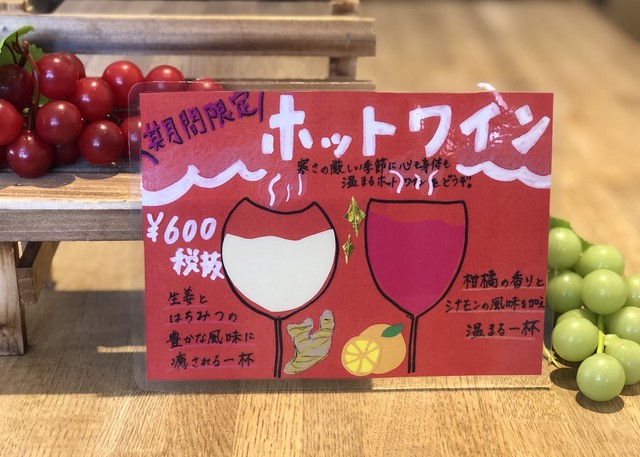 期間限定
ホットワイン
寒さの厳しい季節に心も身体も
温まるホットワインをどうぞ。
¥600
税抜
生姜と
はちみつの
豊かな風味に
癒される一杯
柑橘の香りと
シナモンの風味を加え
温まる一杯